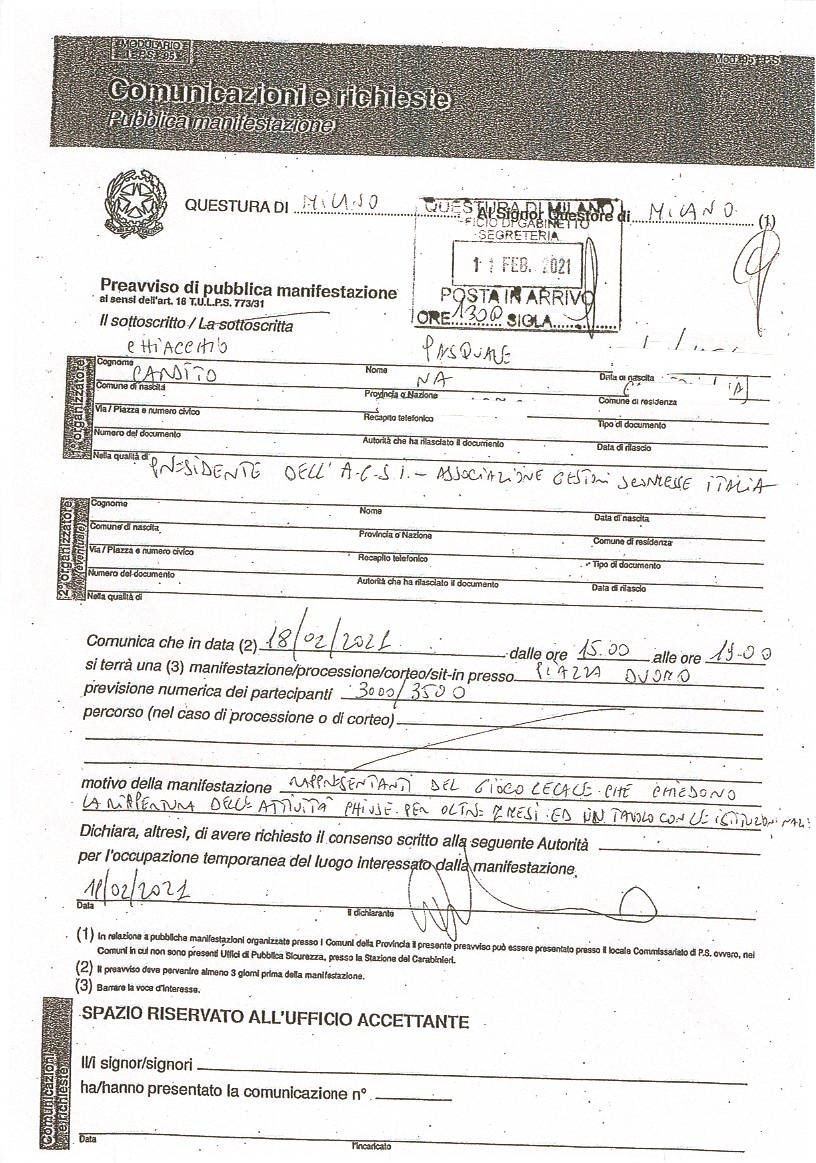 MODULARIO
P.S. 95
Mod. 95 P.S.
Comunicazioni e richieste
Pubblica manifestazione
QUESTURA DI MILANO
Al Signor Questore di MILANO (1)
QUESTURA DI MILANO
UFFICIO DI GABINETTO
SEGRETERIA
11 FEB. 2021
POSTA IN ARRIVO
ORE 1300 SIGLA
Preavviso di pubblica manifestazione
ai sensi dell'art. 18 T.U.L.P.S. 773/31
Il sottoscritto / La sottoscritta
CHIACCHIO PASQUALE
Cognome Nome Data di nascita
CANDITO NA
Comune di nascita Provincia o Nazione Comune di residenza
Via / Piazza e numero civico Recapito telefonico Tipo di documento
Numero del documento Autorità che ha rilasciato il documento Data di rilascio
Nella qualità di PRESIDENTE DELL'A.G.S.I. - ASSOCIAZIONE GESTORI SCOMMESSE ITALIA
1° organizzatore
Cognome Nome Data di nascita
Comune di nascita Provincia o Nazione Comune di residenza
Via / Piazza e numero civico Recapito telefonico Tipo di documento
Numero del documento Autorità che ha rilasciato il documento Data di rilascio
Nella qualità di
2° organizzatore
(eventuale)
Comunica che in data (2) 18/02/2021 dalle ore 15.00 alle ore 19.00
si terrà una (3) manifestazione/processione/corteo/sit-in presso PIAZZA DUOMO
previsione numerica dei partecipanti 3000/3500
percorso (nel caso di processione o di corteo)
motivo della manifestazione RAPPRESENTANTI DEL GIOCO LEGALE CHE CHIEDONO
LA RIAPERTURA DELLE ATTIVITÀ CHIUSE PER OLTRE 7 MESI ED UN TAVOLO CON LE ISTITUZIONI
Dichiara, altresì, di avere richiesto il consenso scritto alla seguente Autorità
per l'occupazione temporanea del luogo interessato dalla manifestazione.
11/02/2021
Data Il dichiarante
(1) In relazione a pubbliche manifestazioni organizzate presso i Comuni della Provincia il presente preavviso può essere presentato presso il locale Commissariato di P.S. ovvero, nei
Comuni in cui non sono presenti Uffici di Pubblica Sicurezza, presso la Stazione dei Carabinieri.
(2) Il preavviso deve pervenire almeno 3 giorni prima della manifestazione.
(3) Barrare la voce d'interesse.
SPAZIO RISERVATO ALL'UFFICIO ACCETTANTE
Il/i signor/signori
ha/hanno presentato la comunicazione n°
Data l'incaricato
Comunicazioni
e richieste